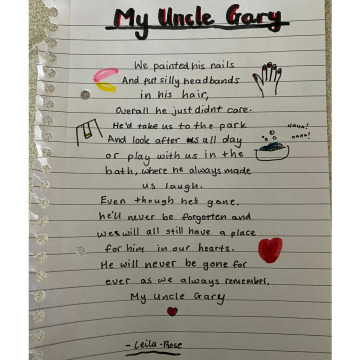 My Uncle Gary
We painted his nails
And put silly headbands
in his hair,
Overall he just didnt care.
He'd take us to the park
And look after us all day
or play with us in the
bath, where he always made
us laugh.
HAHA!
HAHA!
Even though he's gone.
he'll never be forgotten and
we will all still have a place
for him in our hearts.
He will never be gone for
ever as we always remember.
My Uncle Gary
- Leila-Rose